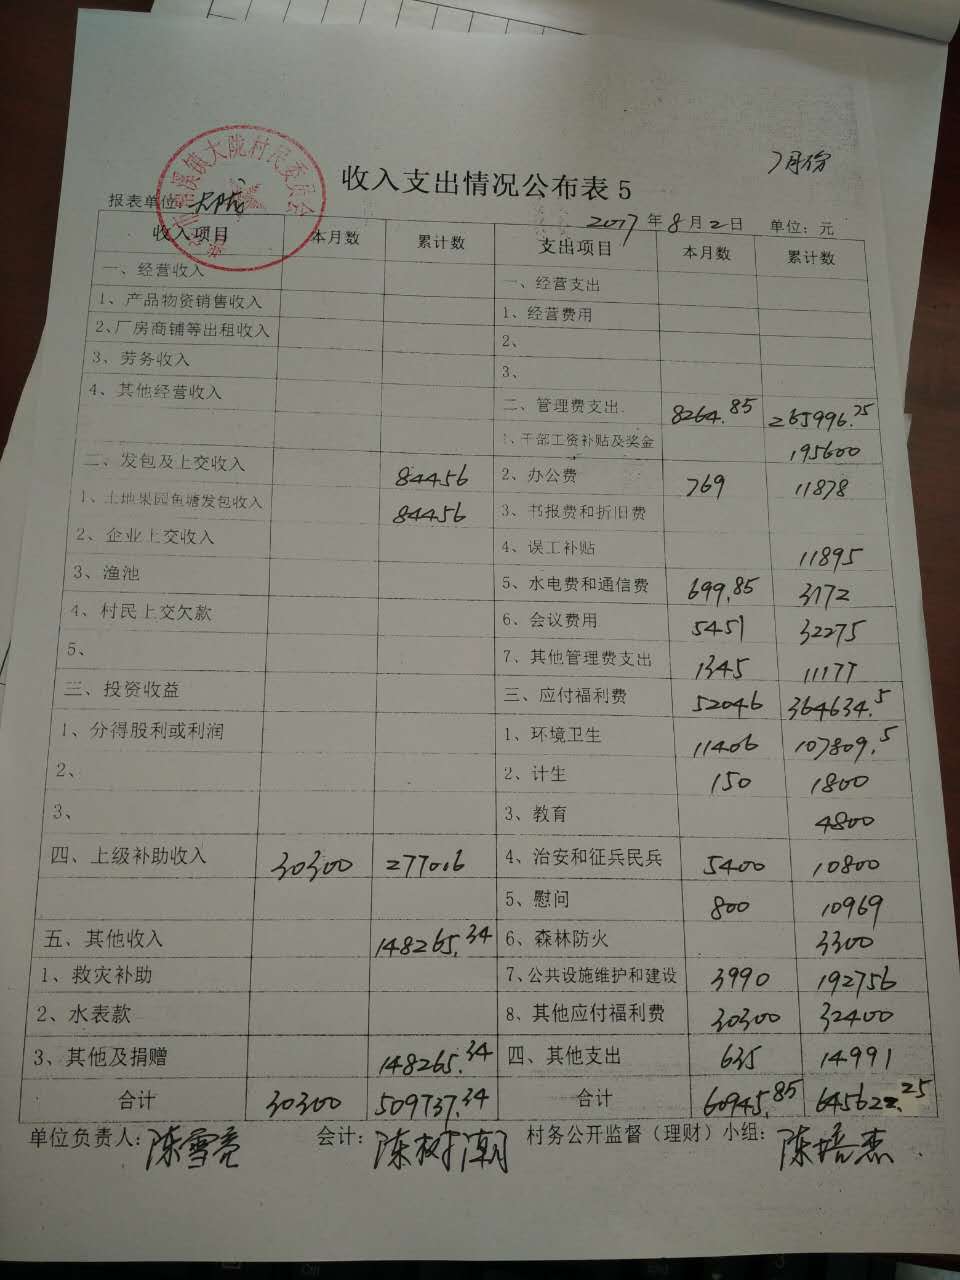 7月份
收入支出情况公布表5
报表单位：大陇
2017年8月2日 单位：元
收入项目 本月数 累计数 支出项目 本月数 累计数
一、经营收入 一、经营支出
1、产品物资销售收入 1、经营费用
2、厂房商铺等出租收入 2、
3、劳务收入 3、
4、其他经营收入 二、管理费支出 8264.85 265996.75
1、干部工资补贴及奖金 195600
二、发包及上交收入 84456 2、办公费 769 11878
1、土地果园鱼塘发包收入 84456 3、书报费和折旧费
2、企业上交收入 4、误工补贴 11895
3、渔池 5、水电费和通信费 699.85 3172
4、村民上交欠款 6、会议费用 5451 32275
5、 7、其他管理费支出 1345 11177
三、投资收益 三、应付福利费 52046 364634.5
1、分得股利或利润 1、环境卫生 11406 107809.5
2、 2、计生 150 1800
3、 3、教育 4800
四、上级补助收入 30300 277016 4、治安和征兵民兵 5400 10800
5、慰问 800 10969
五、其他收入 148265.34 6、森林防火 3300
1、救灾补助 7、公共设施维护和建设 3990 192756
2、水表款 8、其他应付福利费 30300 32400
3、其他及捐赠 148265.34 四、其他支出 635 14991
合计 30300 509737.34 合计 60945.85 645622.25
单位负责人：陈雪亮 会计：陈树潮 村务公开监督（理财）小组：陈培杰
溪镇大陇村民委员会